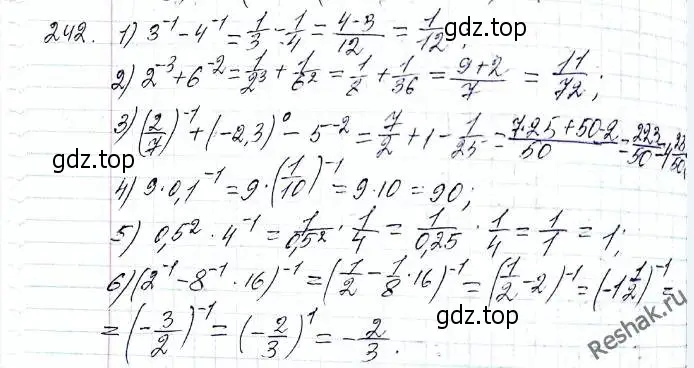 242. 1) 3^-1 - 4^-1 = 1/3 - 1/4 = (4-3)/12 = 1/12;
2) 2^-3 + 6^-2 = 1/2^3 + 1/6^2 = 1/8 + 1/36 = (9+2)/7 = 11/72;
гдз.top
3) (2/7)^-1 + (-2,3)^0 - 5^-2 = 7/2 + 1 - 1/25 = (7·25+50-2)/50 = 223/50 = 4 23/50;
гдз.top
4) 9·0,1^-1 = 9·(1/10)^-1 = 9·10 = 90;
гдз.top
5) 0,5^2 · 4^-1 = 1/0,5^2 · 1/4 = 1/0,25 · 1/4 = 1/1 = 1;
6) (2^-1 - 8^-1 · 16)^-1 = (1/2 - 1/8 · 16)^-1 = (1/2 - 2)^-1 = (-1 1/2)^-1 =
= (-3/2)^-1 = (-2/3)^1 = -2/3.
гдз.top
Reshak.ru